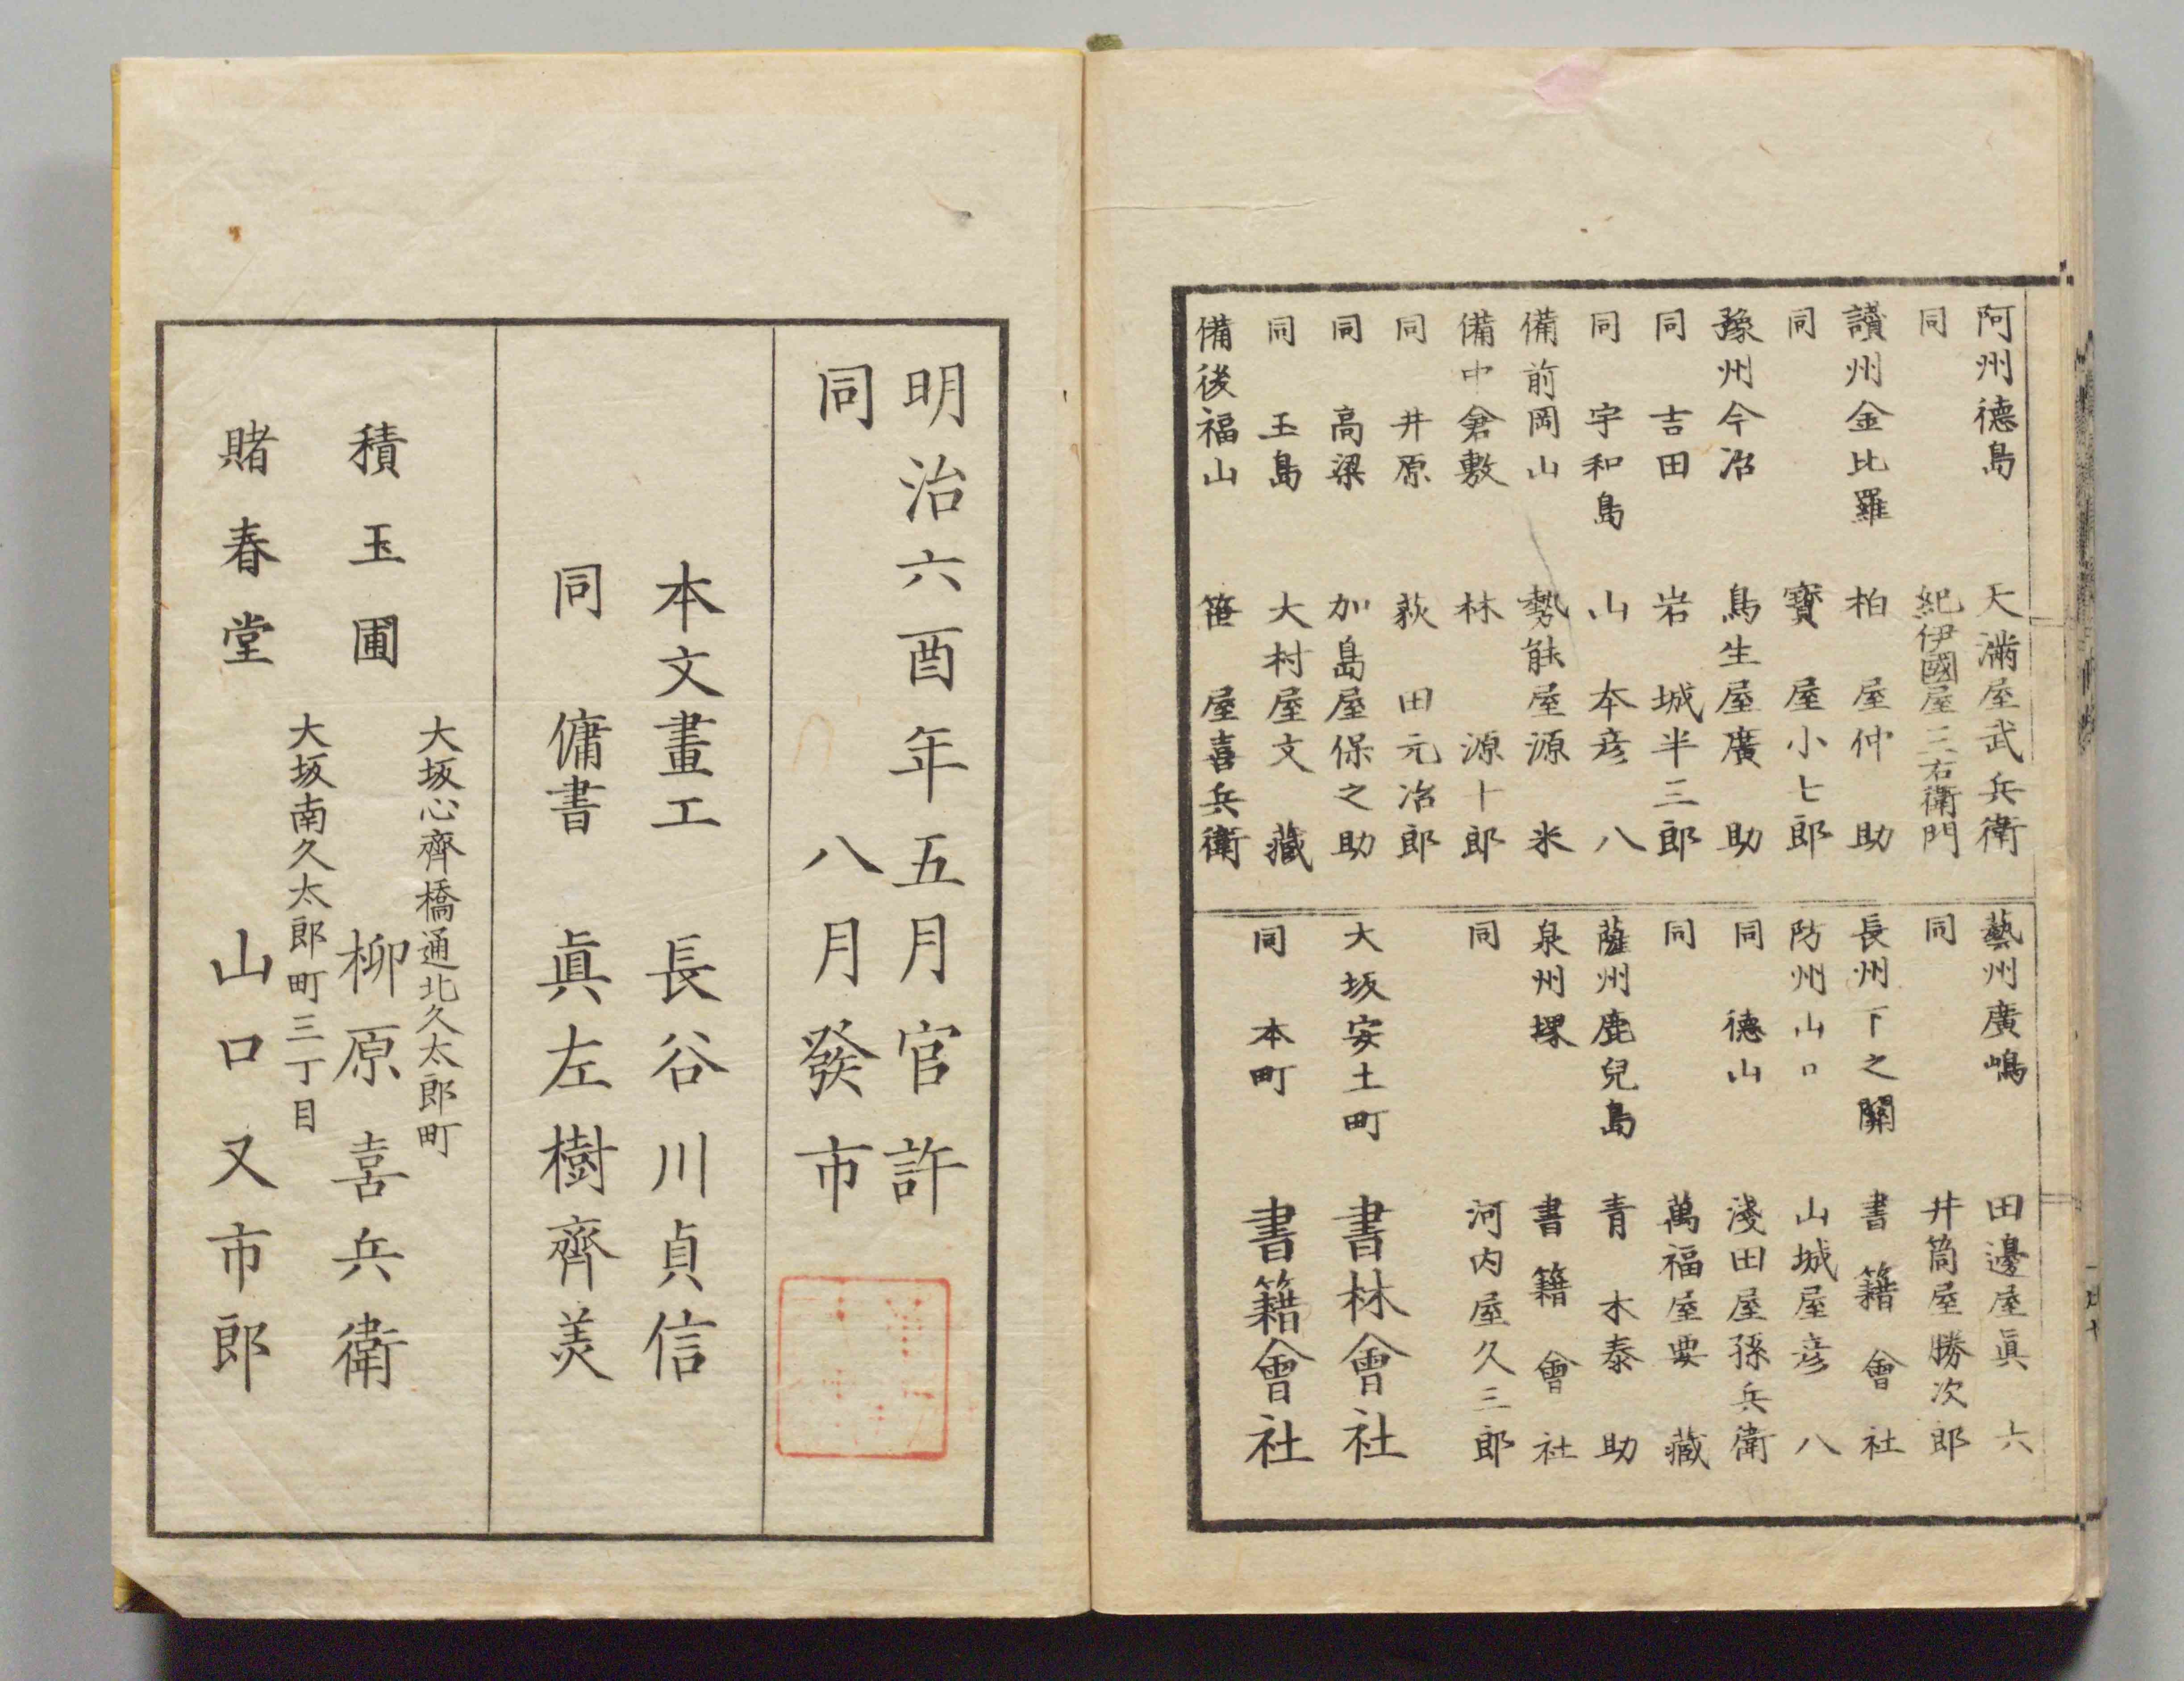 阿州徳島 天滿屋武兵衛
同 紀伊國屋三右衛門
讃州金比羅 柏屋仲助
同 寶屋小七郎
豫州今治 鳥生屋廣助
同 吉田 岩城半三郎
同 宇和島 山本彦八
備前岡山 勢能屋源米
備中倉敷 林源十郎
同 井原 荻田元治郎
同 高梁 加島屋保之助
同 玉島 大村屋文藏
備後福山 笹屋喜兵衛
藝州廣嶋 田邊屋眞六
同 井筒屋勝次郎
長州下之關 書籍會社
防州山口 山城屋彦八
同 徳山 淺田屋孫兵衛
同 萬福屋要藏
薩州鹿兒島 青木泰助
泉州堺 書籍會社
同 河内屋久三郎
大坂安土町 書林會社
同 本町 書籍會社
明治六酉年五月官許
同 八月發市
本文畫工 長谷川貞信
同 傭書 眞左樹齊美
大坂心齊橋通北久太郎町
積玉圃 柳原喜兵衛
大坂南久太郎町三丁目
賭春堂 山口又市郎